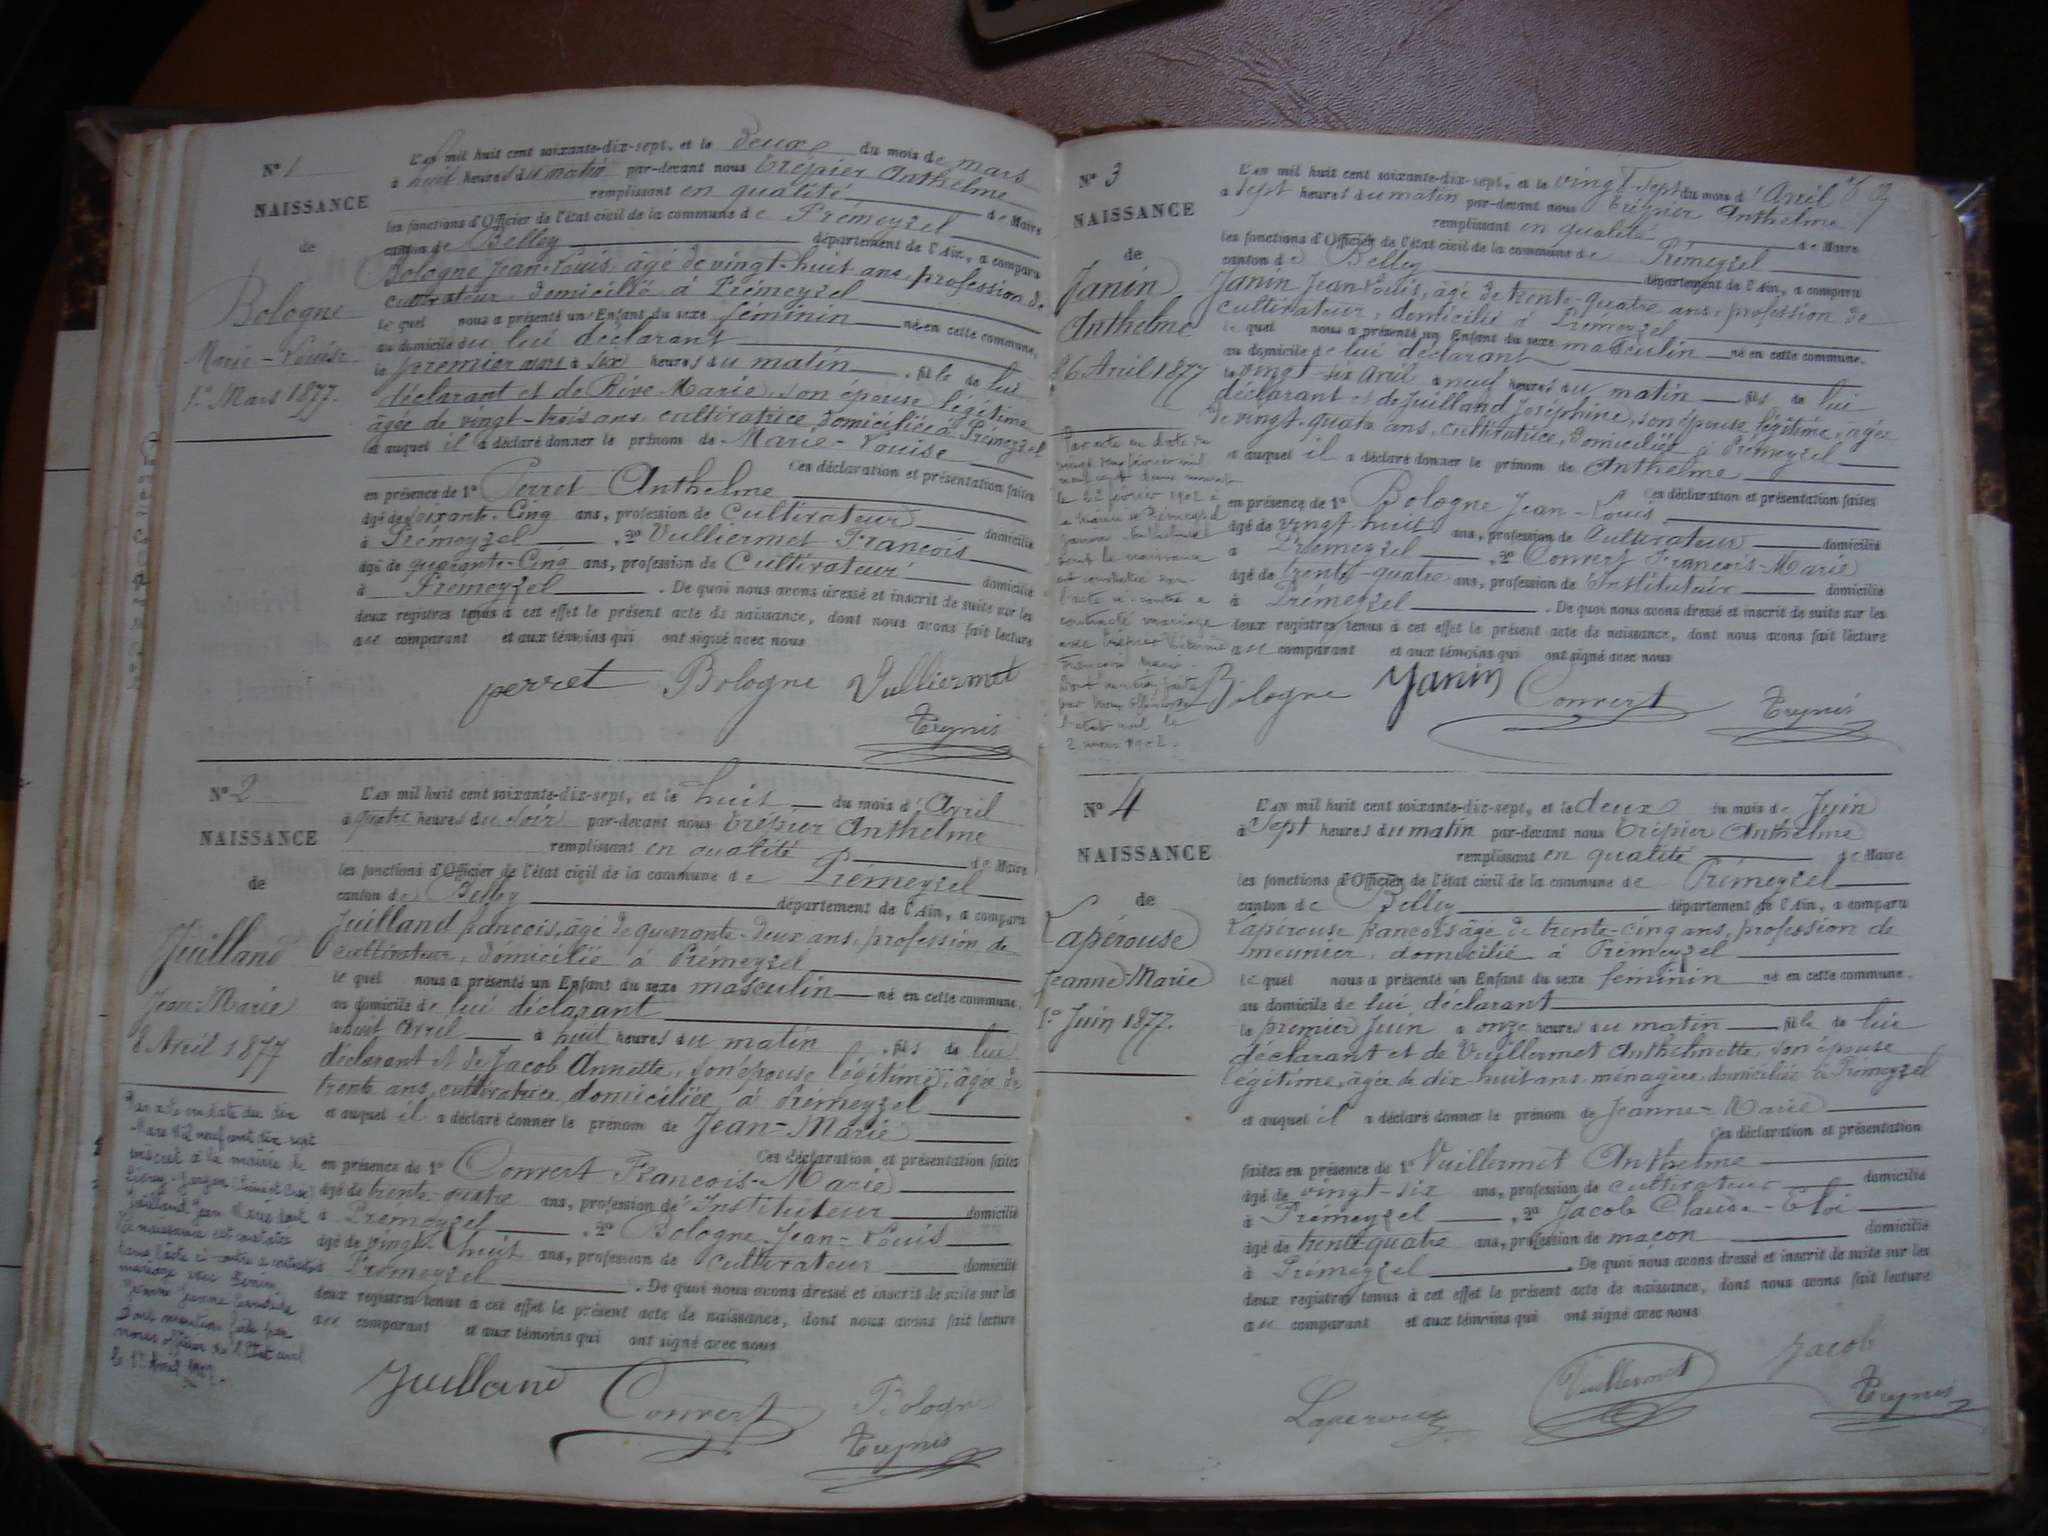 N° 1
NAISSANCE
de
Bologne
Marie-Louise
1er Mars 1877.
L'an mil huit cent soixante-dix-sept, et le deux du mois de mars
à huit heures du matin par-devant nous Trépier Anthelme
remplissant en qualité de Maire
les fonctions d'Officier de l'état civil de la commune de Prémeyzel
canton de Belley département de l'Ain, a comparu
Bologne Jean-Louis, âgé de vingt-huit ans, profession de
cultivateur, domicilié à Prémeyzel
lequel nous a présenté un Enfant du sexe féminin né en cette commune,
au domicile du lui déclarant
le premier mars à six heures du matin, fille de lui
déclarant et de Rive Marie, son épouse légitime
âgée de vingt-trois ans, cultivatrice, domiciliée à Prémeyzel
et auquel il a déclaré donner le prénom de Marie-Louise
Ces déclaration et présentation faites
en présence de 1° Perret Anthelme
âgé de soixante-cinq ans, profession de Cultivateur domicilié
à Prémeyzel, 2° Vulliermet François
âgé de quarante-cinq ans, profession de Cultivateur domicilié
à Prémeyzel. De quoi nous avons dressé et inscrit de suite sur les
deux registres tenus à cet effet le présent acte de naissance, dont nous avons fait lecture
au comparant et aux témoins qui ont signé avec nous
perret Bologne Vulliermet
N° 2
NAISSANCE
de
Juilland
Jean-Marie
8 Avril 1877
L'an mil huit cent soixante-dix-sept, et le huit du mois d'Avril
à quatre heures du soir par-devant nous Trépier Anthelme
remplissant en qualité de Maire
les fonctions d'Officier de l'état civil de la commune de Prémeyzel
canton de Belley département de l'Ain, a comparu
Juilland françois, âgé de quarante-deux ans, profession de
cultivateur, domicilié à Prémeyzel
lequel nous a présenté un Enfant du sexe masculin né en cette commune,
au domicile de lui déclarant
le huit avril à huit heures du matin, fils de lui
déclarant et de Jacob Annette, son épouse légitime, âgée de
trente ans, cultivatrice, domiciliée à Prémeyzel
et auquel il a déclaré donner le prénom de Jean-Marie
Ces déclaration et présentation faites
en présence de 1° Convert François-Marie
âgé de trente-quatre ans, profession d'Instituteur domicilié
à Prémeyzel, 2° Bologne Jean-Louis
âgé de vingt-huit ans, profession de cultivateur domicilié
à Prémeyzel. De quoi nous avons dressé et inscrit de suite sur les
deux registres tenus à cet effet le présent acte de naissance, dont nous avons fait lecture
au comparant et aux témoins qui ont signé avec nous
Par acte en date du dix
Mars Mil neuf cent dix sept
inscrit à la mairie de
Juilland Jean Marie dont
la naissance est constatée
dans l'acte ci-contre a contracté
mariage avec
Jeanne
Dont mention faite par
nous officier de l'Etat civil
Juilland Convert Bologne
N° 3
NAISSANCE
de
Janin
Anthelme
26 Avril 1877
L'an mil huit cent soixante-dix-sept, et le vingt-sept du mois d'Avril
à sept heures du matin par-devant nous Trépier Anthelme
remplissant en qualité de Maire
les fonctions d'Officier de l'état civil de la commune de Prémeyzel
canton de Belley département de l'Ain, a comparu
Janin Jean-Louis, âgé de trente-quatre ans, profession de
cultivateur, domicilié à Prémeyzel
lequel nous a présenté un Enfant du sexe masculin né en cette commune,
au domicile de lui déclarant
le vingt-six avril à neuf heures du matin fils de lui
déclarant et de Juilland Joséphine, son épouse légitime, âgée
de vingt-quatre ans, cultivatrice, domiciliée à Prémeyzel
et auquel il a déclaré donner le prénom de Anthelme
Ces déclaration et présentation faites
en présence de 1° Bologne Jean-Louis
âgé de vingt-huit ans, profession de Cultivateur domicilié
à Prémeyzel, 2° Convert François-Marie
âgé de trente-quatre ans, profession d'Instituteur domicilié
à Prémeyzel. De quoi nous avons dressé et inscrit de suite sur les
deux registres tenus à cet effet le présent acte de naissance, dont nous avons fait lecture
au comparant et aux témoins qui ont signé avec nous
Par acte en date du
vingt deux février mil
neuf cent deux inscrit
le 22 février 1902 à
la mairie de Prémeyzel
Janin Anthelme
dont la naissance
est constatée dans
l'acte ci-contre a
contracté mariage
avec Trépier
Dont mention faite
par nous officier de
l'état civil le
2 mars 1902.
Bologne Janin Convert
N° 4
NAISSANCE
de
Lapérouse
Jeanne-Marie
1er Juin 1877.
L'an mil huit cent soixante-dix-sept, et le deux du mois de Juin
à Sept heures du matin par-devant nous Trépier Anthelme
remplissant en qualité de Maire
les fonctions d'Officier de l'état civil de la commune de Prémeyzel
canton de Belley département de l'Ain, a comparu
Lapérouse françois âgé de trente-cinq ans, profession de
meunier, domicilié à Prémeyzel
lequel nous a présenté un Enfant du sexe féminin né en cette commune,
au domicile de lui déclarant
le premier juin à onze heures du matin fille de lui
déclarant et de Vuyllermet Anthelmette, son épouse
légitime, âgée de dix huit ans, ménagère, domiciliée à Prémeyzel
et auquel il a déclaré donner le prénom de Jeanne-Marie
Ces déclaration et présentation
faites en présence de 1° Vuillermet Anthelme
âgé de vingt-six ans, profession de cultivateur domicilié
à Prémeyzel, 2° Jacob Claude-Eloi
âgé de trente-quatre ans, profession de maçon domicilié
à Prémeyzel. De quoi nous avons dressé et inscrit de suite sur les
deux registres tenus à cet effet le présent acte de naissance, dont nous avons fait lecture
au comparant et aux témoins qui ont signé avec nous
Laperouze Vuillermet Jacob